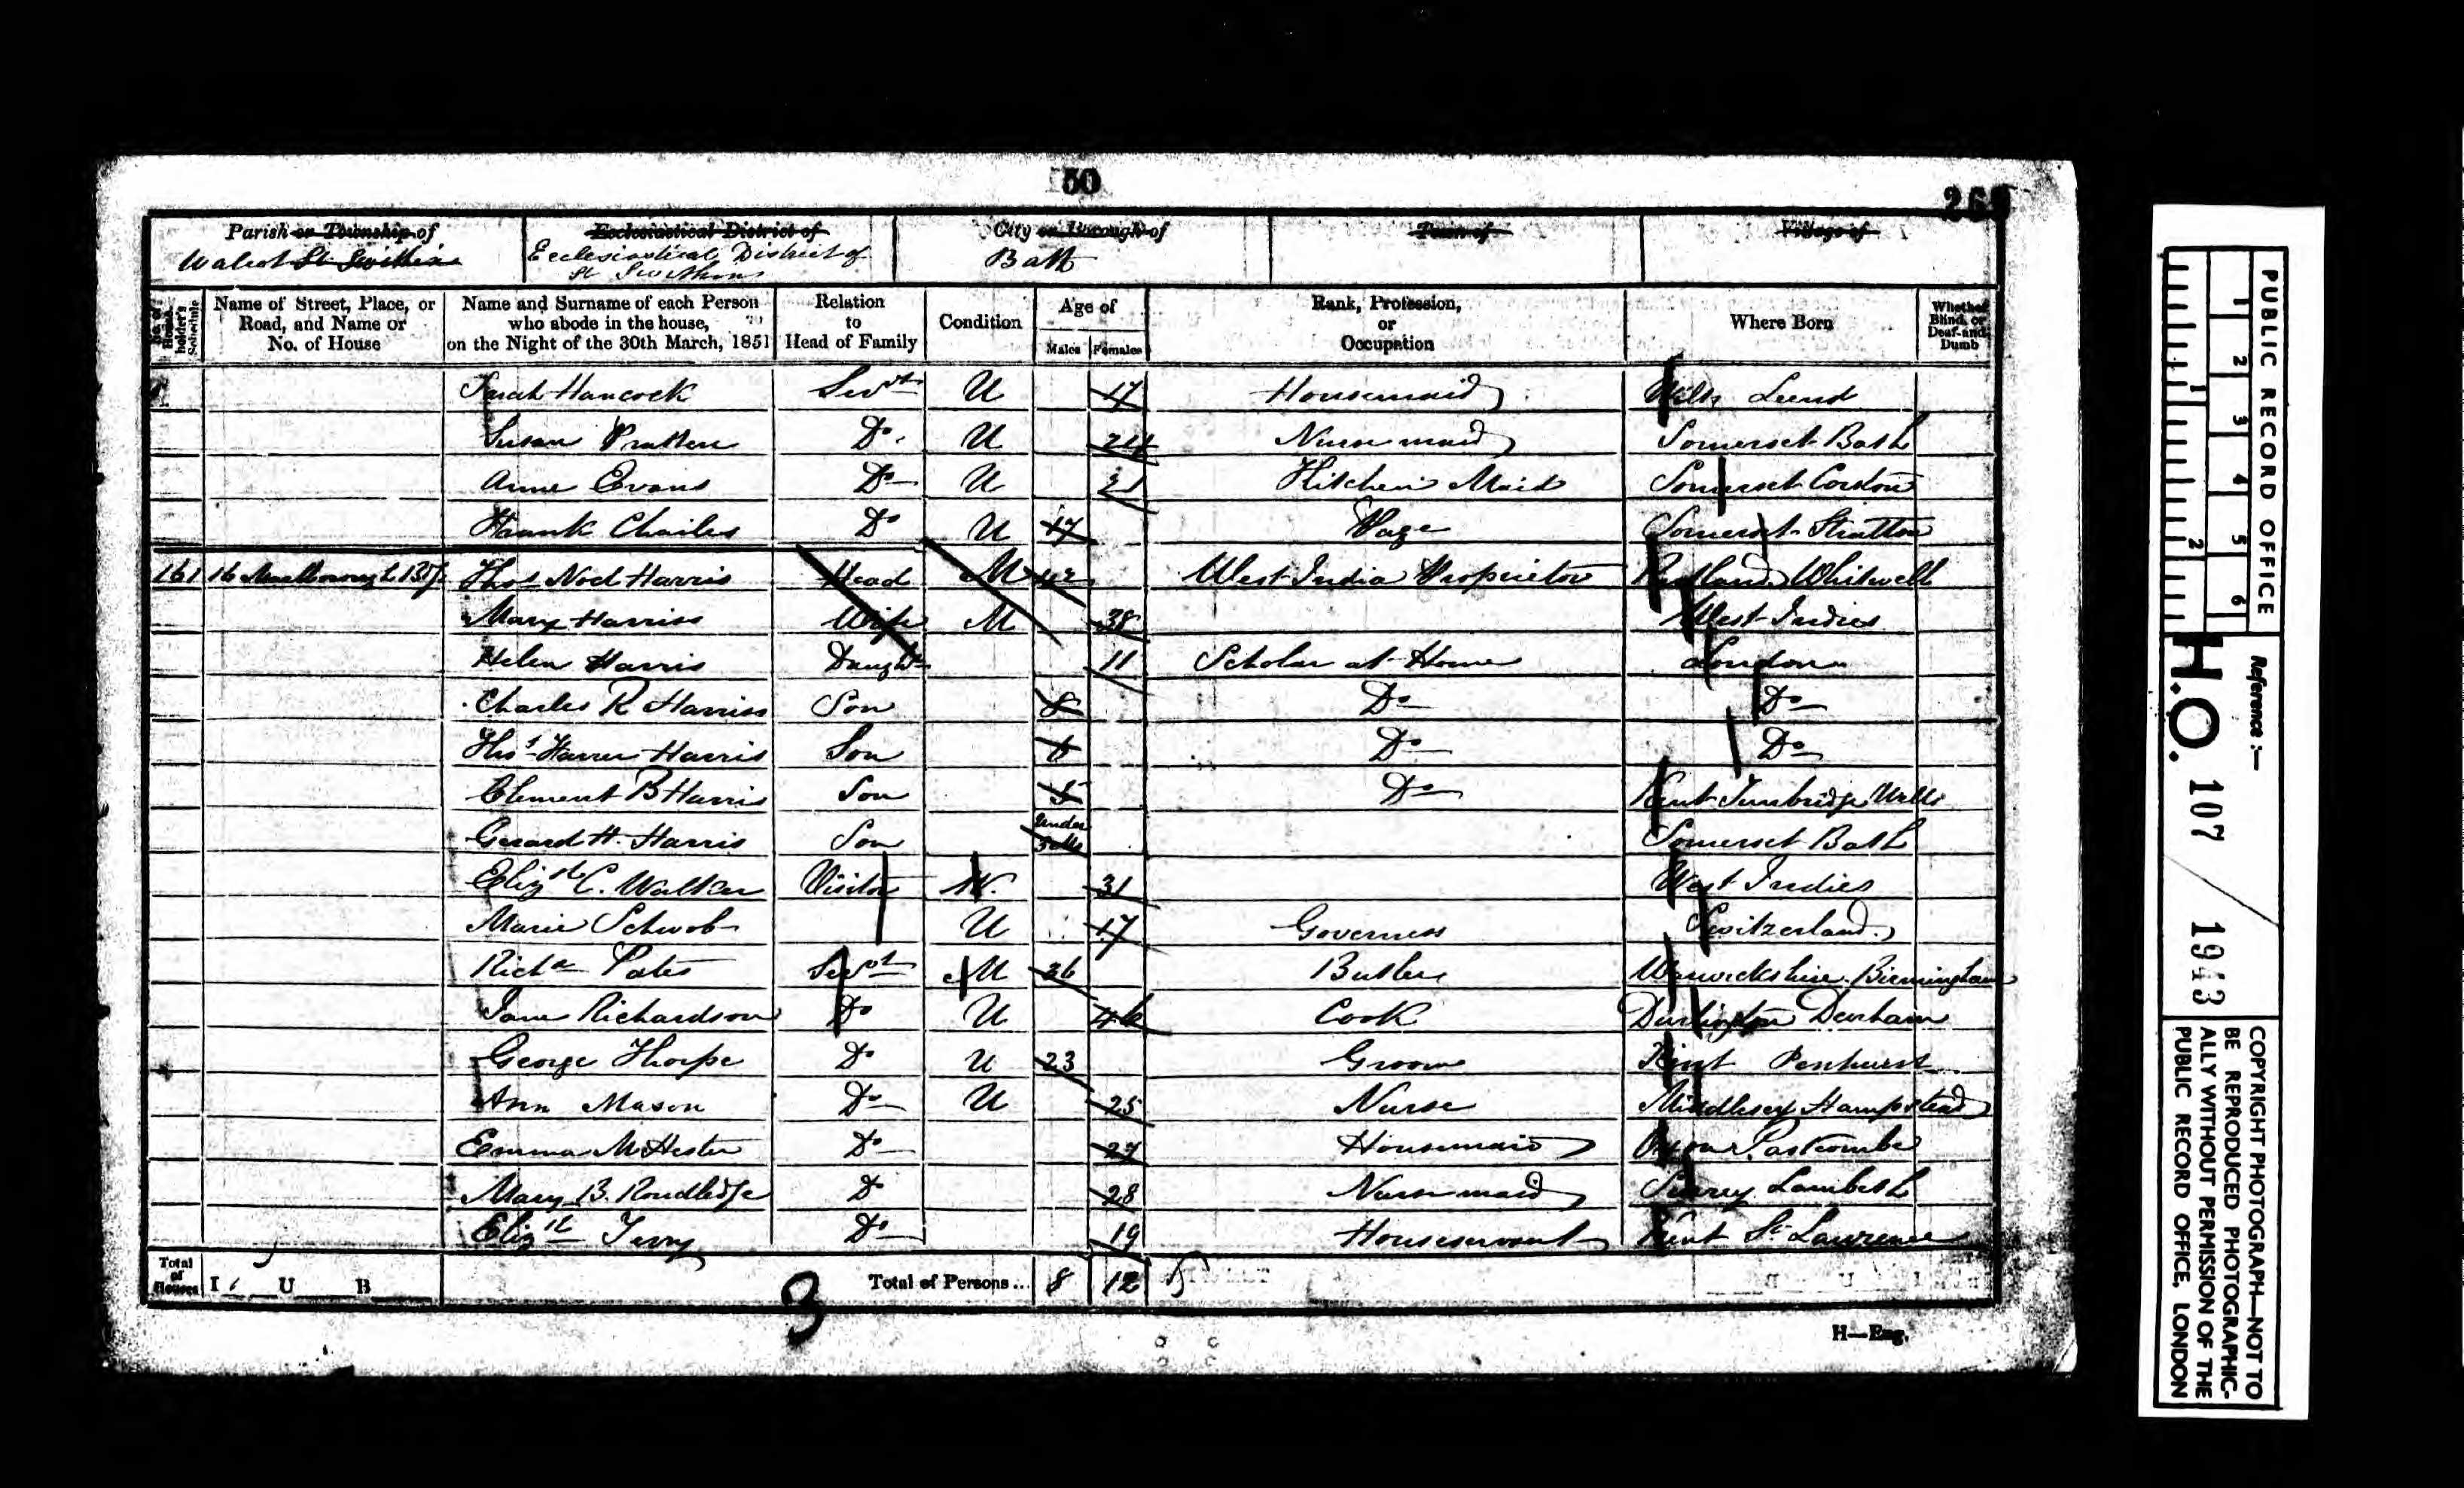 50
268
Parish or Township of
Ecclesiastical District of
City or Borough of
Town of
Village of
Walcot St Swithins
Ecclesiastical District of
St Swithins
Bath
No. of House-holder's Schedule
Name of Street, Place, or Road, and Name or No. of House
Name and Surname of each Person who abode in the house, on the Night of the 30th March, 1851
Relation to Head of Family
Condition
Age of
Males Females
Rank, Profession, or Occupation
Where Born
Whether Blind, or Deaf-and-Dumb
Sarah Hancock Servt U 17 Housemaid Wilts Seend
Susan Pratten Do. U 24 Nurse maid Somerset Bath
Anne Evans Do U 21 Kitchen Maid Somerset
Frank Charles Do U 17 Page Somerset Stratton
161 16 Marlborough Bdgs Thos Noel Harris Head M 42 West India Proprietor Rutland Whitwell
Mary Harriss Wife M 38 West Indies
Helen Harris Daughtr 11 Scholar at Home London
Charles R Harriss Son 8 Do Do
Thos Harris Son 6 Do Do
Clement B Harris Son 5 Do Kent Tunbridge Wells
Gerard H. Harris Son Under Somerset Bath
Elizth C. Walker Visitor W. 31 West Indies
Marie Schwob U 17 Governess Switzerland
Richd Pates Servt M 36 Butler Warwickshire Birmingham
Jane Richardson Do U 46 Cook Darlington Durham
George Thorpe Do U 23 Groom Kent Penhurst
Ann Mason Do U 25 Nurse Middlesex Hampstead
Emma M Hester Do 27 Housemaid
Mary B. Roudledge Do 28 Nurse maid Surrey Lambeth
Elizth Terry Do 19 Houseservant Kent St Lawrence
Total of Houses I 1 U B
Total of Persons... 8 12
3
H—Eng.
PUBLIC RECORD OFFICE
1 2 3 4 5 6
1 2
Reference :—
H.O. 107 / 1943
COPYRIGHT PHOTOGRAPH—NOT TO
BE REPRODUCED PHOTOGRAPHIC-
ALLY WITHOUT PERMISSION OF THE
PUBLIC RECORD OFFICE, LONDON